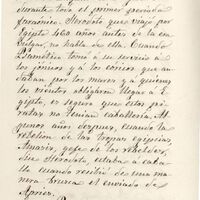 durante todo el primer periodo
faraónico. Herodoto que viajó por
Egipto 460 años antes de la era
vulgar, no habla de ella. Cuando
Psamético tomó a su servicio a
los jonios y a los carios que an-
daban por los mares y a quienes
los vientos obligaron llegar a E-
gipto, es seguro que estos pi-
ratas no tenian caballería. Al-
gunos años despues, cuando la
rebelion de las tropas egipcias,
Amasis, gefe de los rebeldes,
dice Herodoto, estaba á caba-
llo cuando recibió de una ma-
nera brusca el enviado de
Apries.